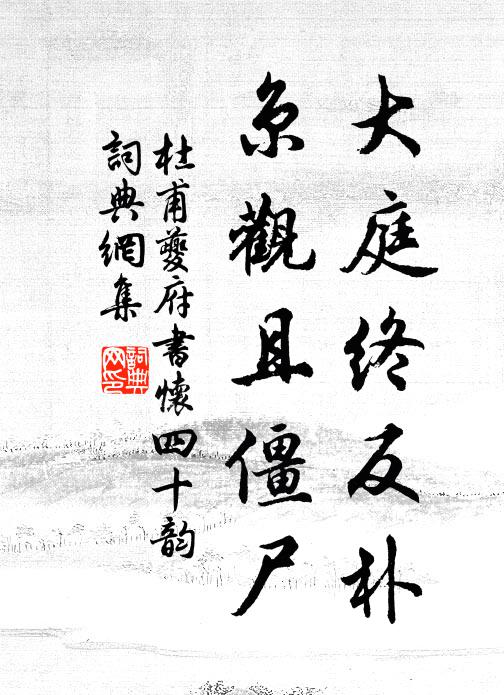 大庭終反朴
京觀且僵尸
杜甫夔府書懷四十韵
詞典網集
詞典網印